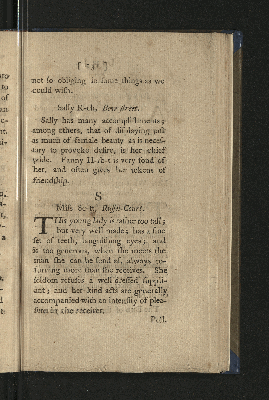 [ 131 ]
not so obliging in some things as we
could wish.
Sally K-ch, Bow street.
Sally has many accomplishments;
among others, that of displaying just
as much of female beauty as is neces-
sary to provoke desire, is her chief
pride. Fanny H-rb-t is very fond of
her, and often gives her tokens of
friendship.
S
Miss Sc-tt, Rupert-Court.
This young lady is rather too tall;
but very well made; has a fine
set of teeth, languishing eyes; and
is too generous, when she meets the
man she can be fond of, always re-
turning more than she receives. She
seldom refuses a well dressed suppli-
ant; and her kind acts are generally
accompanied with an intensity of plea-
sure in the receiver.